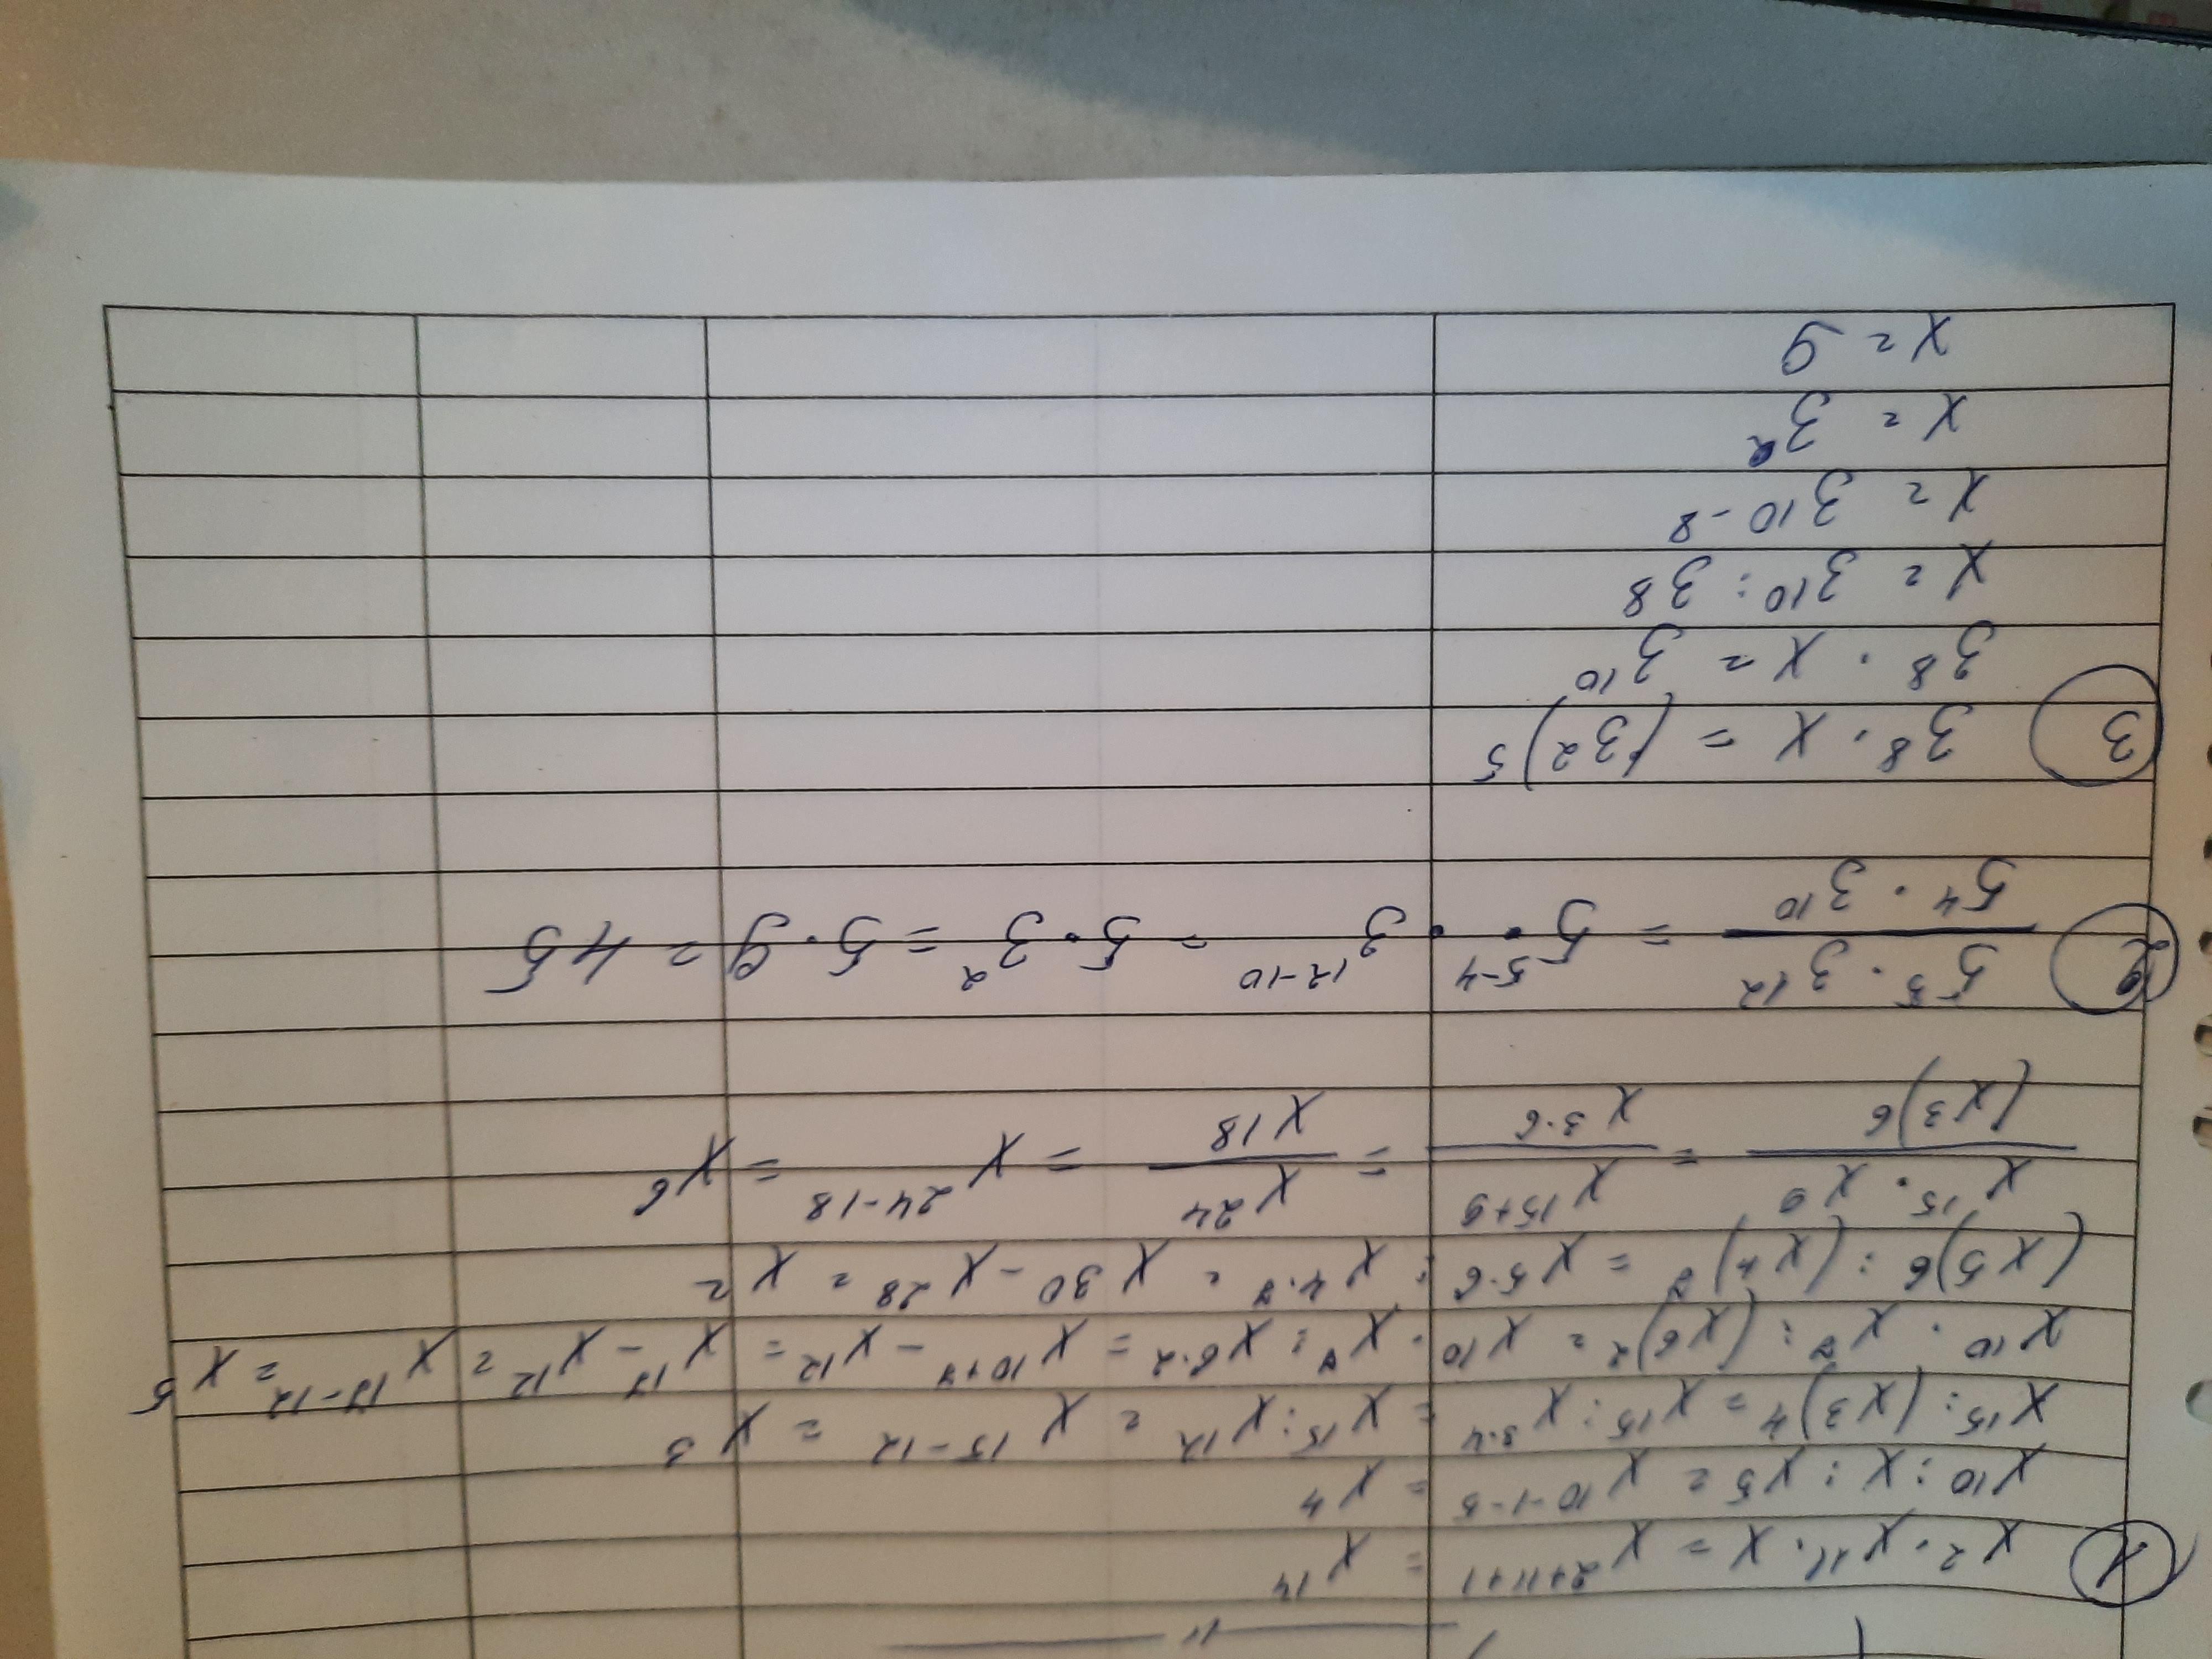 ① x². x¹¹. x = x²⁺¹¹⁺¹ = x¹⁴
x¹⁰ : x : x⁵ = x¹⁰⁻¹⁻⁵ = x⁴
x¹⁵ : (x³)⁴ = x¹⁵ : x³·⁴ = x¹⁵ : x¹² = x¹⁵⁻¹² = x³
x¹⁰ · x⁷ : (x⁶)² = x¹⁰ · x⁷ : x⁶·² = x¹⁰⁺⁷ - x¹² = x¹⁷ - x¹² = x¹⁷⁻¹² = x⁵
(x⁵)⁶ : (x⁴)⁷ = x⁵·⁶ : x⁴·⁷ = x³⁰ - x²⁸ = x²
x¹⁵ · x⁹ / (x³)⁶ = x¹⁵⁺⁹ / x³·⁶ = x²⁴ / x¹⁸ = x²⁴⁻¹⁸ = x⁶
② 5⁵ · 3¹² / 5⁴ · 3¹⁰ = 5⁵⁻⁴ · 3¹²⁻¹⁰ = 5 · 3² = 5 · 9 = 45
③ 3⁸ · x = (3²)⁵
3⁸ · x = 3¹⁰
x = 3¹⁰ : 3⁸
x = 3¹⁰⁻⁸
x = 3²
x = 9